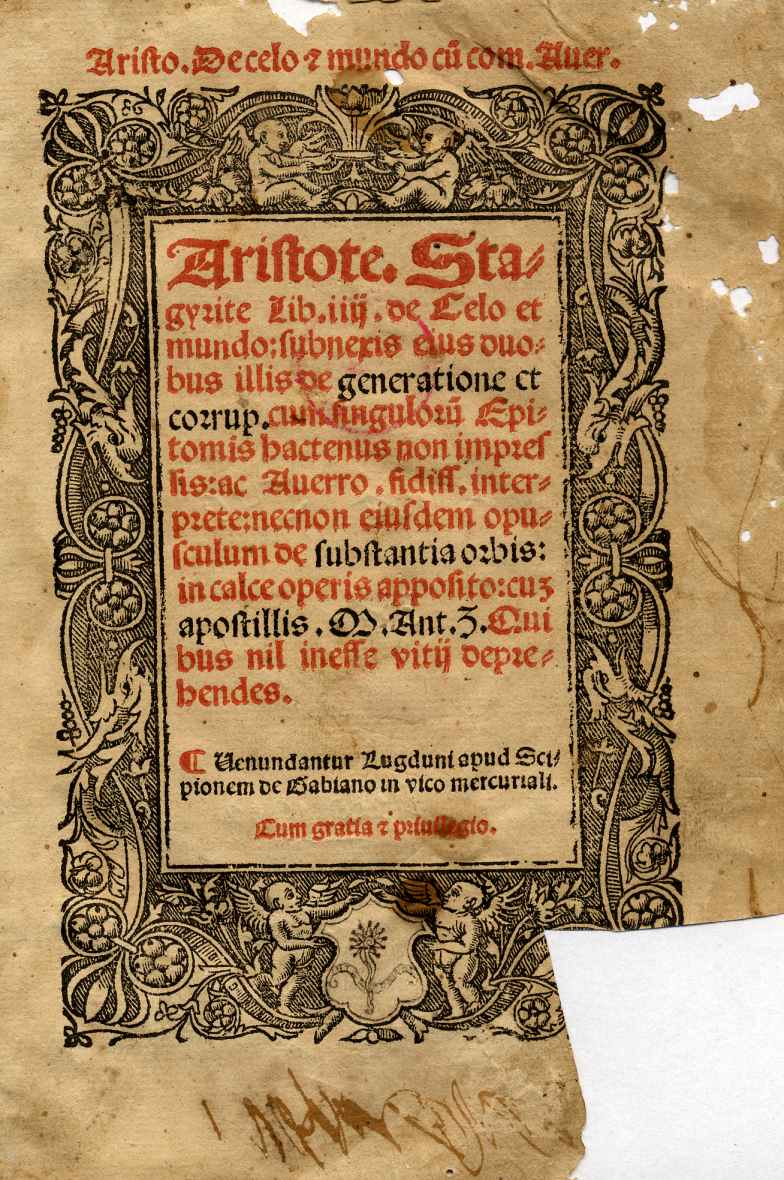 Aristo. De celo ⁊ mundo cũ com. Auer.
Aristote. Sta⸗
gyrite Lib. iiij. de Celo et
mundo: subnexis eius duo⸗
bus illis de generatione et
corrup. cum singulorũ Epi⸗
tomis hactenus non impres
sis: ac Auerro. fidiss. inter⸗
prete: necnon eiusdem opu⸗
sculum de substantia orbis:
in calce operis apposito: cuʒ
apostillis. M. Ant. Z. Qui
bus nil inesse vitij depre⸗
hendes.
¶ Uenundantur Lugduni apud Sci⸗
pionem de Gabiano in vico mercuriali.
Cum gratia ⁊ priuilegio.